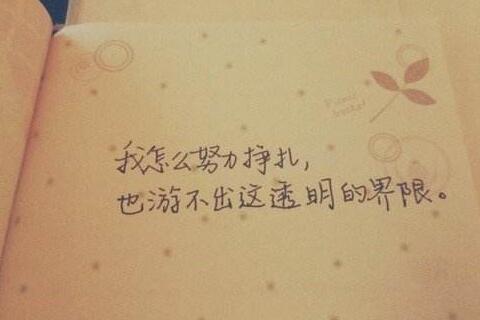 我怎么努力挣扎,
也游不出这透明的界限。